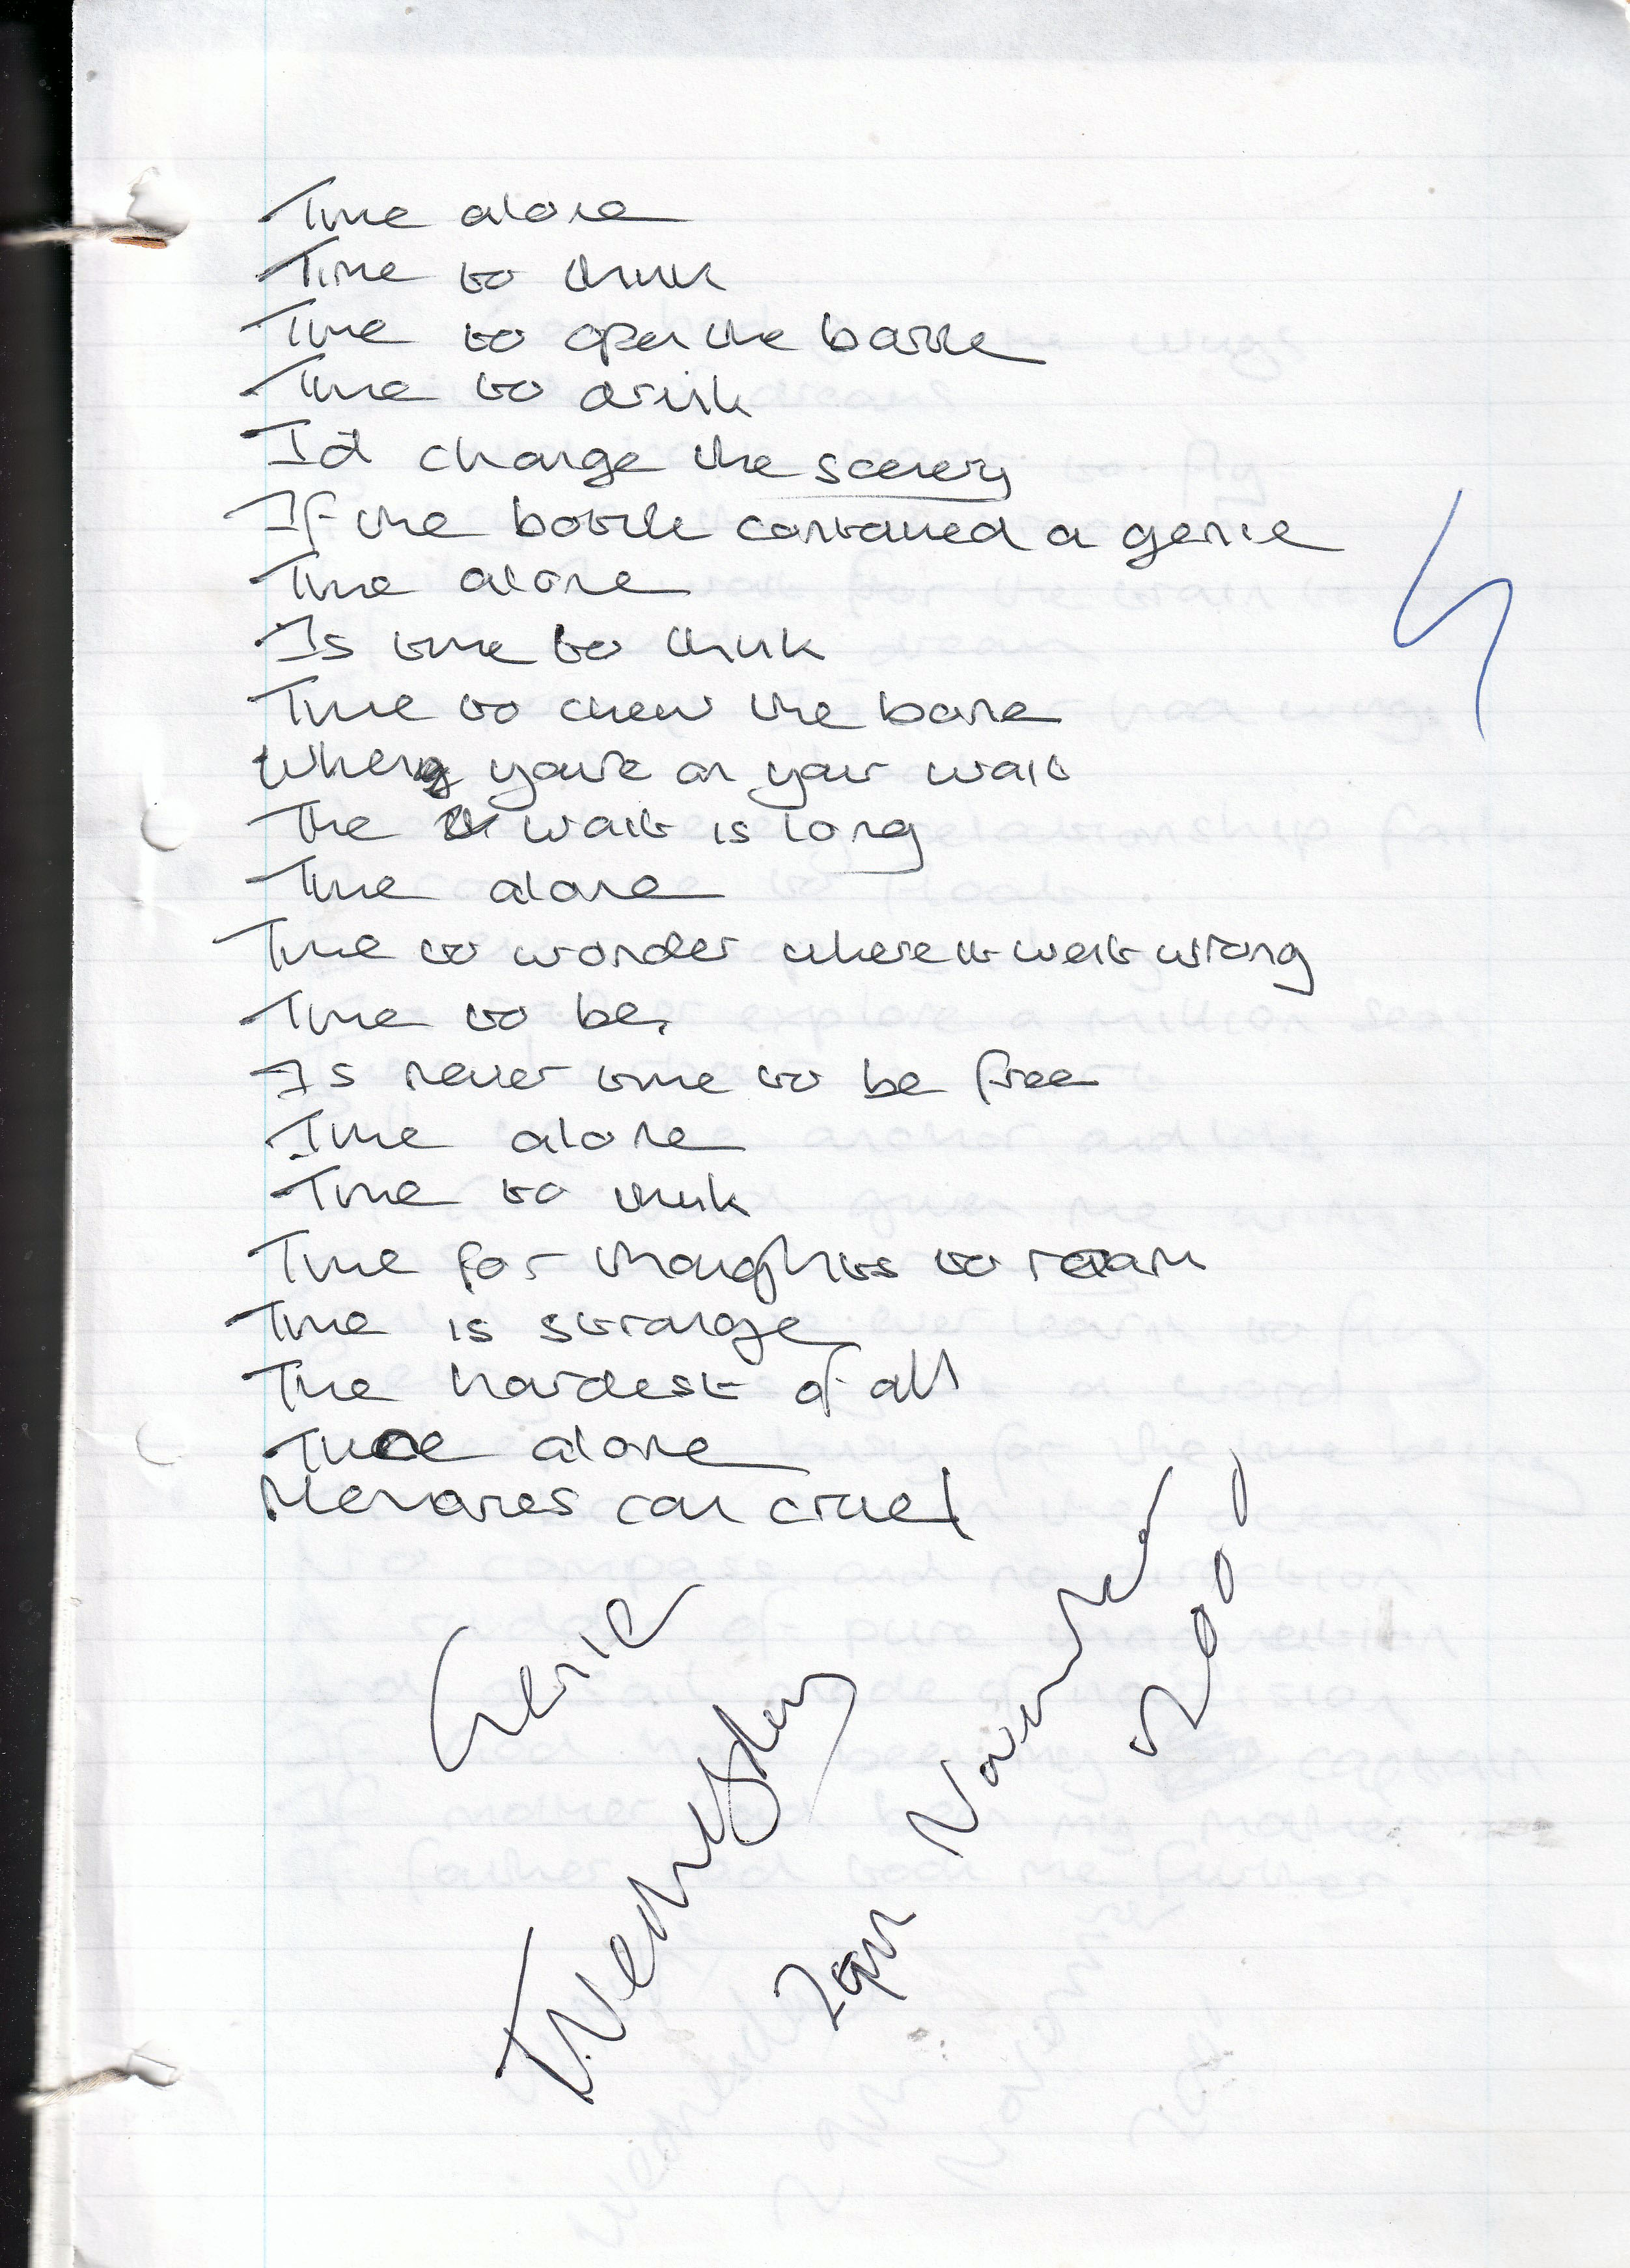 Time alone
Time to think
Time to open the bottle
Time to drink
I'd change the scenery
If the bottle contained a genie
Time alone
Is time to think
Time to chew the bone
When you're on your wait
The wait is long
Time alone
Time to wonder where it went wrong
Time to be,
Is never time to be free
Time alone
Time to think
Time for thoughts to roam
Time is strange
The hardest of all
Time alone
Memories can cruel
Genie
Wednesday
November
2001